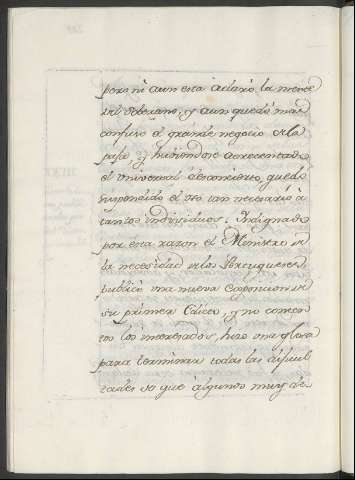 pero ni aun esta aclaró la mente
del Soberano, y aun quedó mas
confuso el grande negocio de la
paz, y haviendose acrecentado
el universal abrimiento, quedó
suspendido el uso tan necesario á
tantos individuos. Indignado
por esta razon el Ministro de
la necesidad de los Portugueses
publicó una nueva exposicion de
su primer Edicto, y no conten
tos los interesados, hizo una glosa
para terminar todas las dificul
tades so que algunos muy de